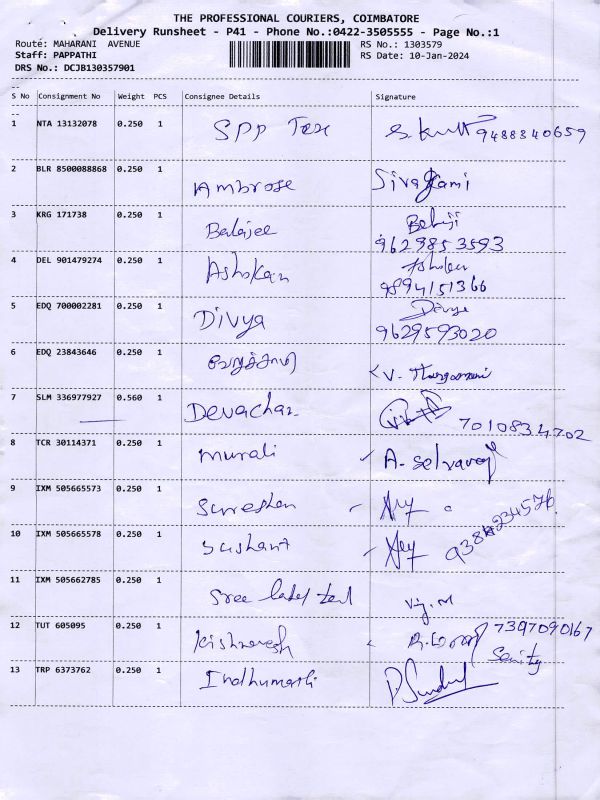 THE PROFESSIONAL COURIERS, COIMBATORE
Delivery Runsheet - P41 - Phone No.:0422-3505555 - Page No.:1
Route: MAHARANI AVENUE RS No.: 1303579
Staff: PAPPATHI RS Date: 10-Jan-2024
DRS No.: DCJB130357901
S No Consignment No Weight PCS Consignee Details Signature
1 NTA 13132078 0.250 1 SPP Tex 9488840659
2 BLR 8500088868 0.250 1 Ambrose Sivagami
3 KRG 171738 0.250 1 Balajee
9629853593
4 DEL 901479274 0.250 1 Ashokan
9894151366
5 EDQ 700002281 0.250 1 Divya Divya
9629593020
6 EDQ 23843646 0.250 1 V. Thangamani
7 SLM 336977927 0.560 1 Devachan 7010834702
8 TCR 30114371 0.250 1 Murali A. Selvaraj
9 IXM 505665573 0.250 1
10 IXM 505665578 0.250 1 Sushant
11 IXM 505662785 0.250 1 Sree label Vij. M
12 TUT 605095 0.250 1 7397090167
13 TRP 6373762 0.250 1 Indhumathi